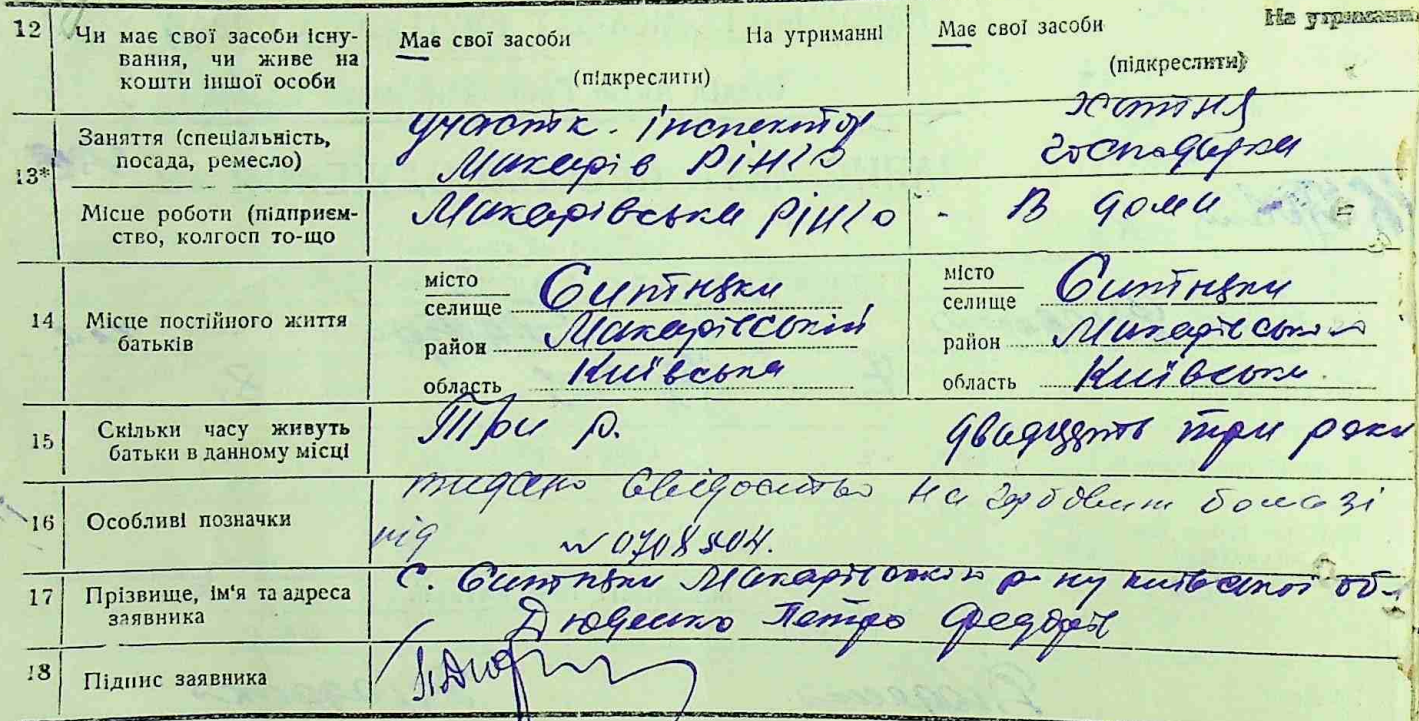 12 Чи має свої засоби існу-
вання, чи живе на
кошти іншої особи
Має свої засоби На утриманні
(підкреслити)
Має свої засоби На утриманні
(підкреслити)
13* Заняття (спеціальність,
посада, ремесло)
участк. інспектор
Макарів РІНГО
хатня
господарка
Місце роботи (підприєм-
ство, колгосп то-що
Макарівське РІНГО - В доми
14 Місце постійного життя
батьків
місто
селище Ситняки
район Макарівський
область Київська
місто
селище Ситняки
район Макарівський
область Київська
15 Скільки часу живуть
батьки в данному місці
Три р.
двадцять три роки
16 Особливі позначки
свідоцтво на гербовім бомазі
під №
17 Прізвище, ім'я та адреса
заявника
с. Ситняки Макарівського р-ну київської об-
Петро Федорів
18 Підпис заявника